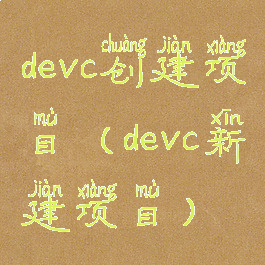 chuàng jiàn xiàng
devc创建项
mù xīn
目（devc新
jiàn xiàng mù
建项目）